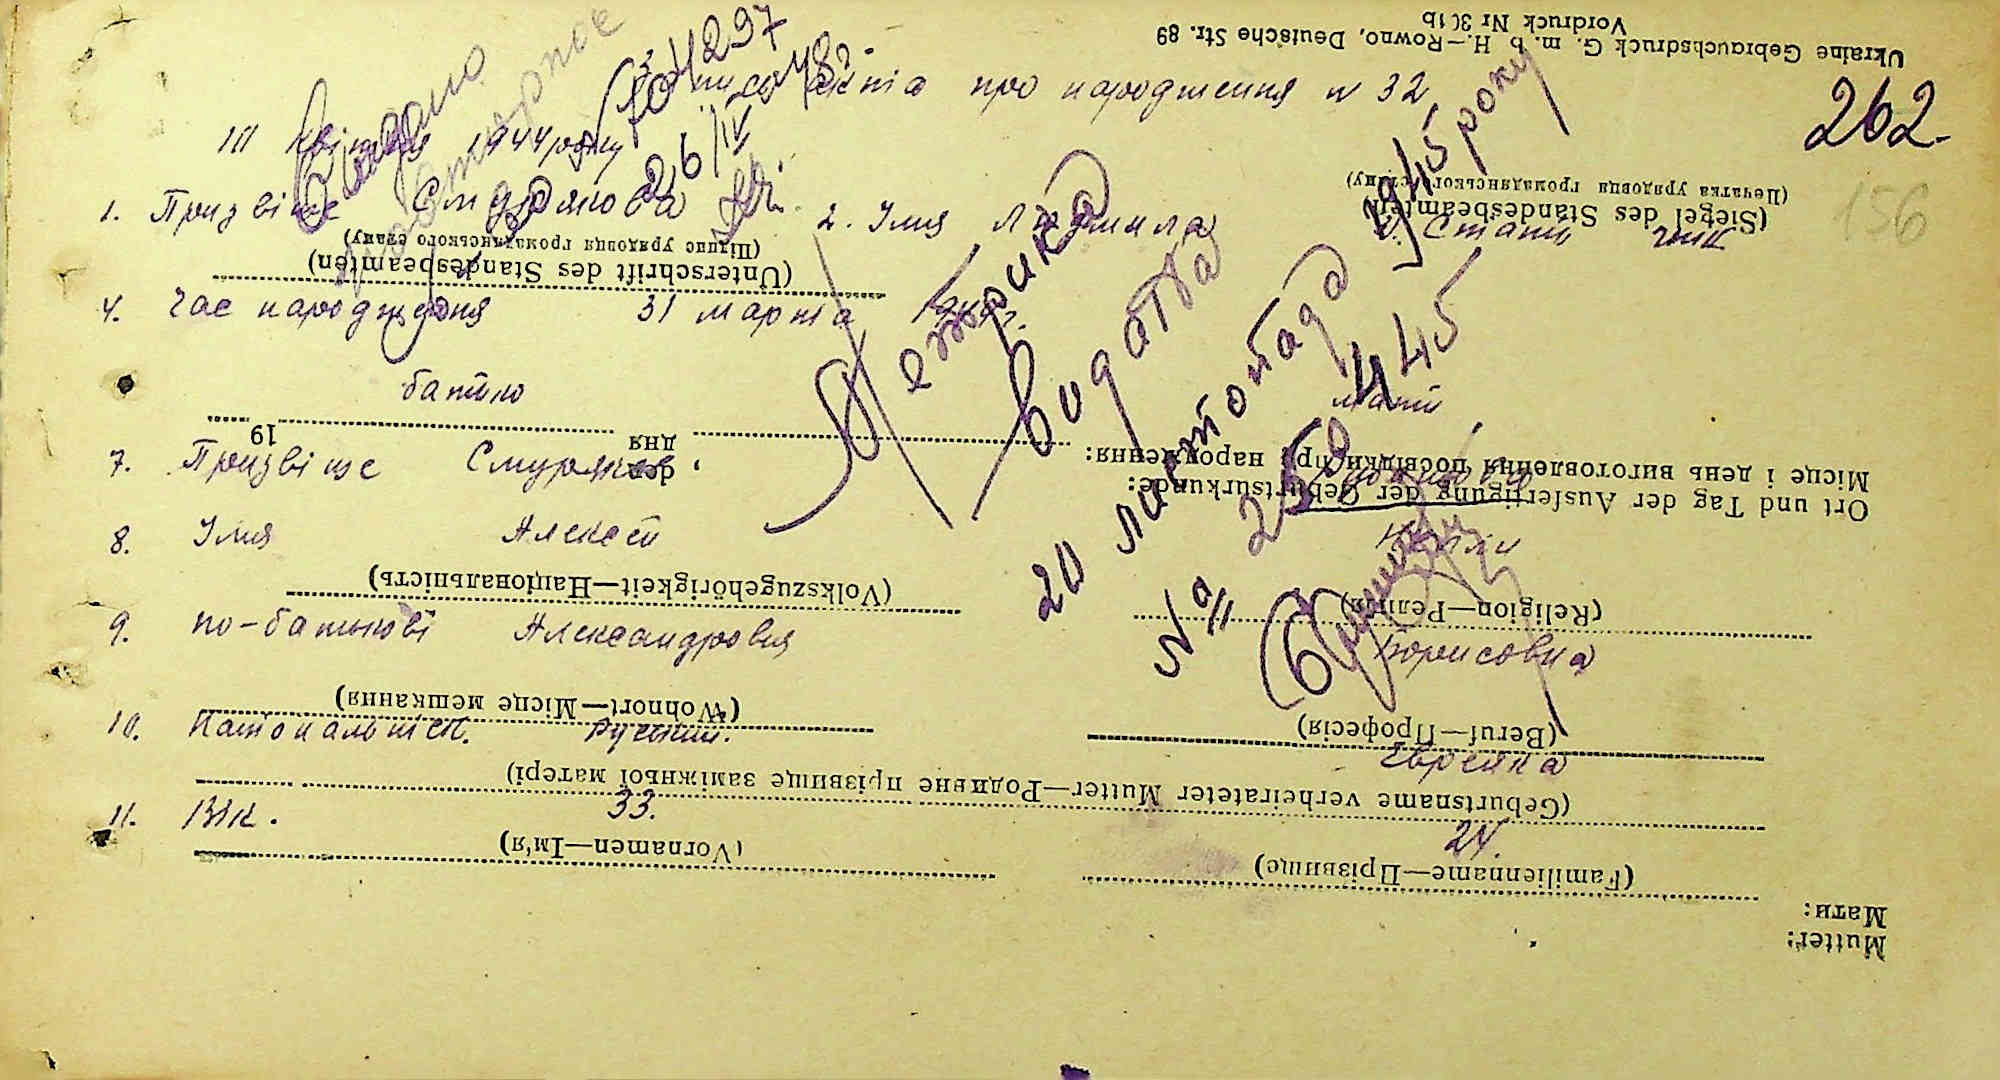 Ukraine Gebrauchsdruck G. m. b. H.—Rowno, Deutsche Str. 89
Vordruck Nr 3(1b
262.
156
акта про народження N 32
1944 року
26/IV
1. Призвіще Смурякова 2. Імя Людмила 3. Стать жін
(Siegel des Standesbeamten)
(Печатка урядовця громадянського стану)
(Unterschrift des Standesbeamten)
(Підпис урядовця громадянського стану)
4. Час народження 31 марта 1944 г.
батько мати
7. Призвіще Смуряков
den дня 19
Ort und Tag der Ausfertigung der Geburtsurkunde:
Місце і день виготовлення посвідки про народження:
8. Імя Алексей Нелли
(Volkszugehörigkeit—Національність)
(Religion—Релігія)
9. по-батькові Александровия Борисовна
(Wohnort—Місце мешкання)
(Beruf—Професія)
10. Національніст. Русский. Еврейка
(Geburtsname verheirateter Mutter—Родивне прізвище заміжньої матері)
11. Вік. 33. 24.
(Vornamen—Ім'я)
(Familienname—Прізвище)
Mutter:
Мати:
Метрика
видана
20 листопада 1945 року
№